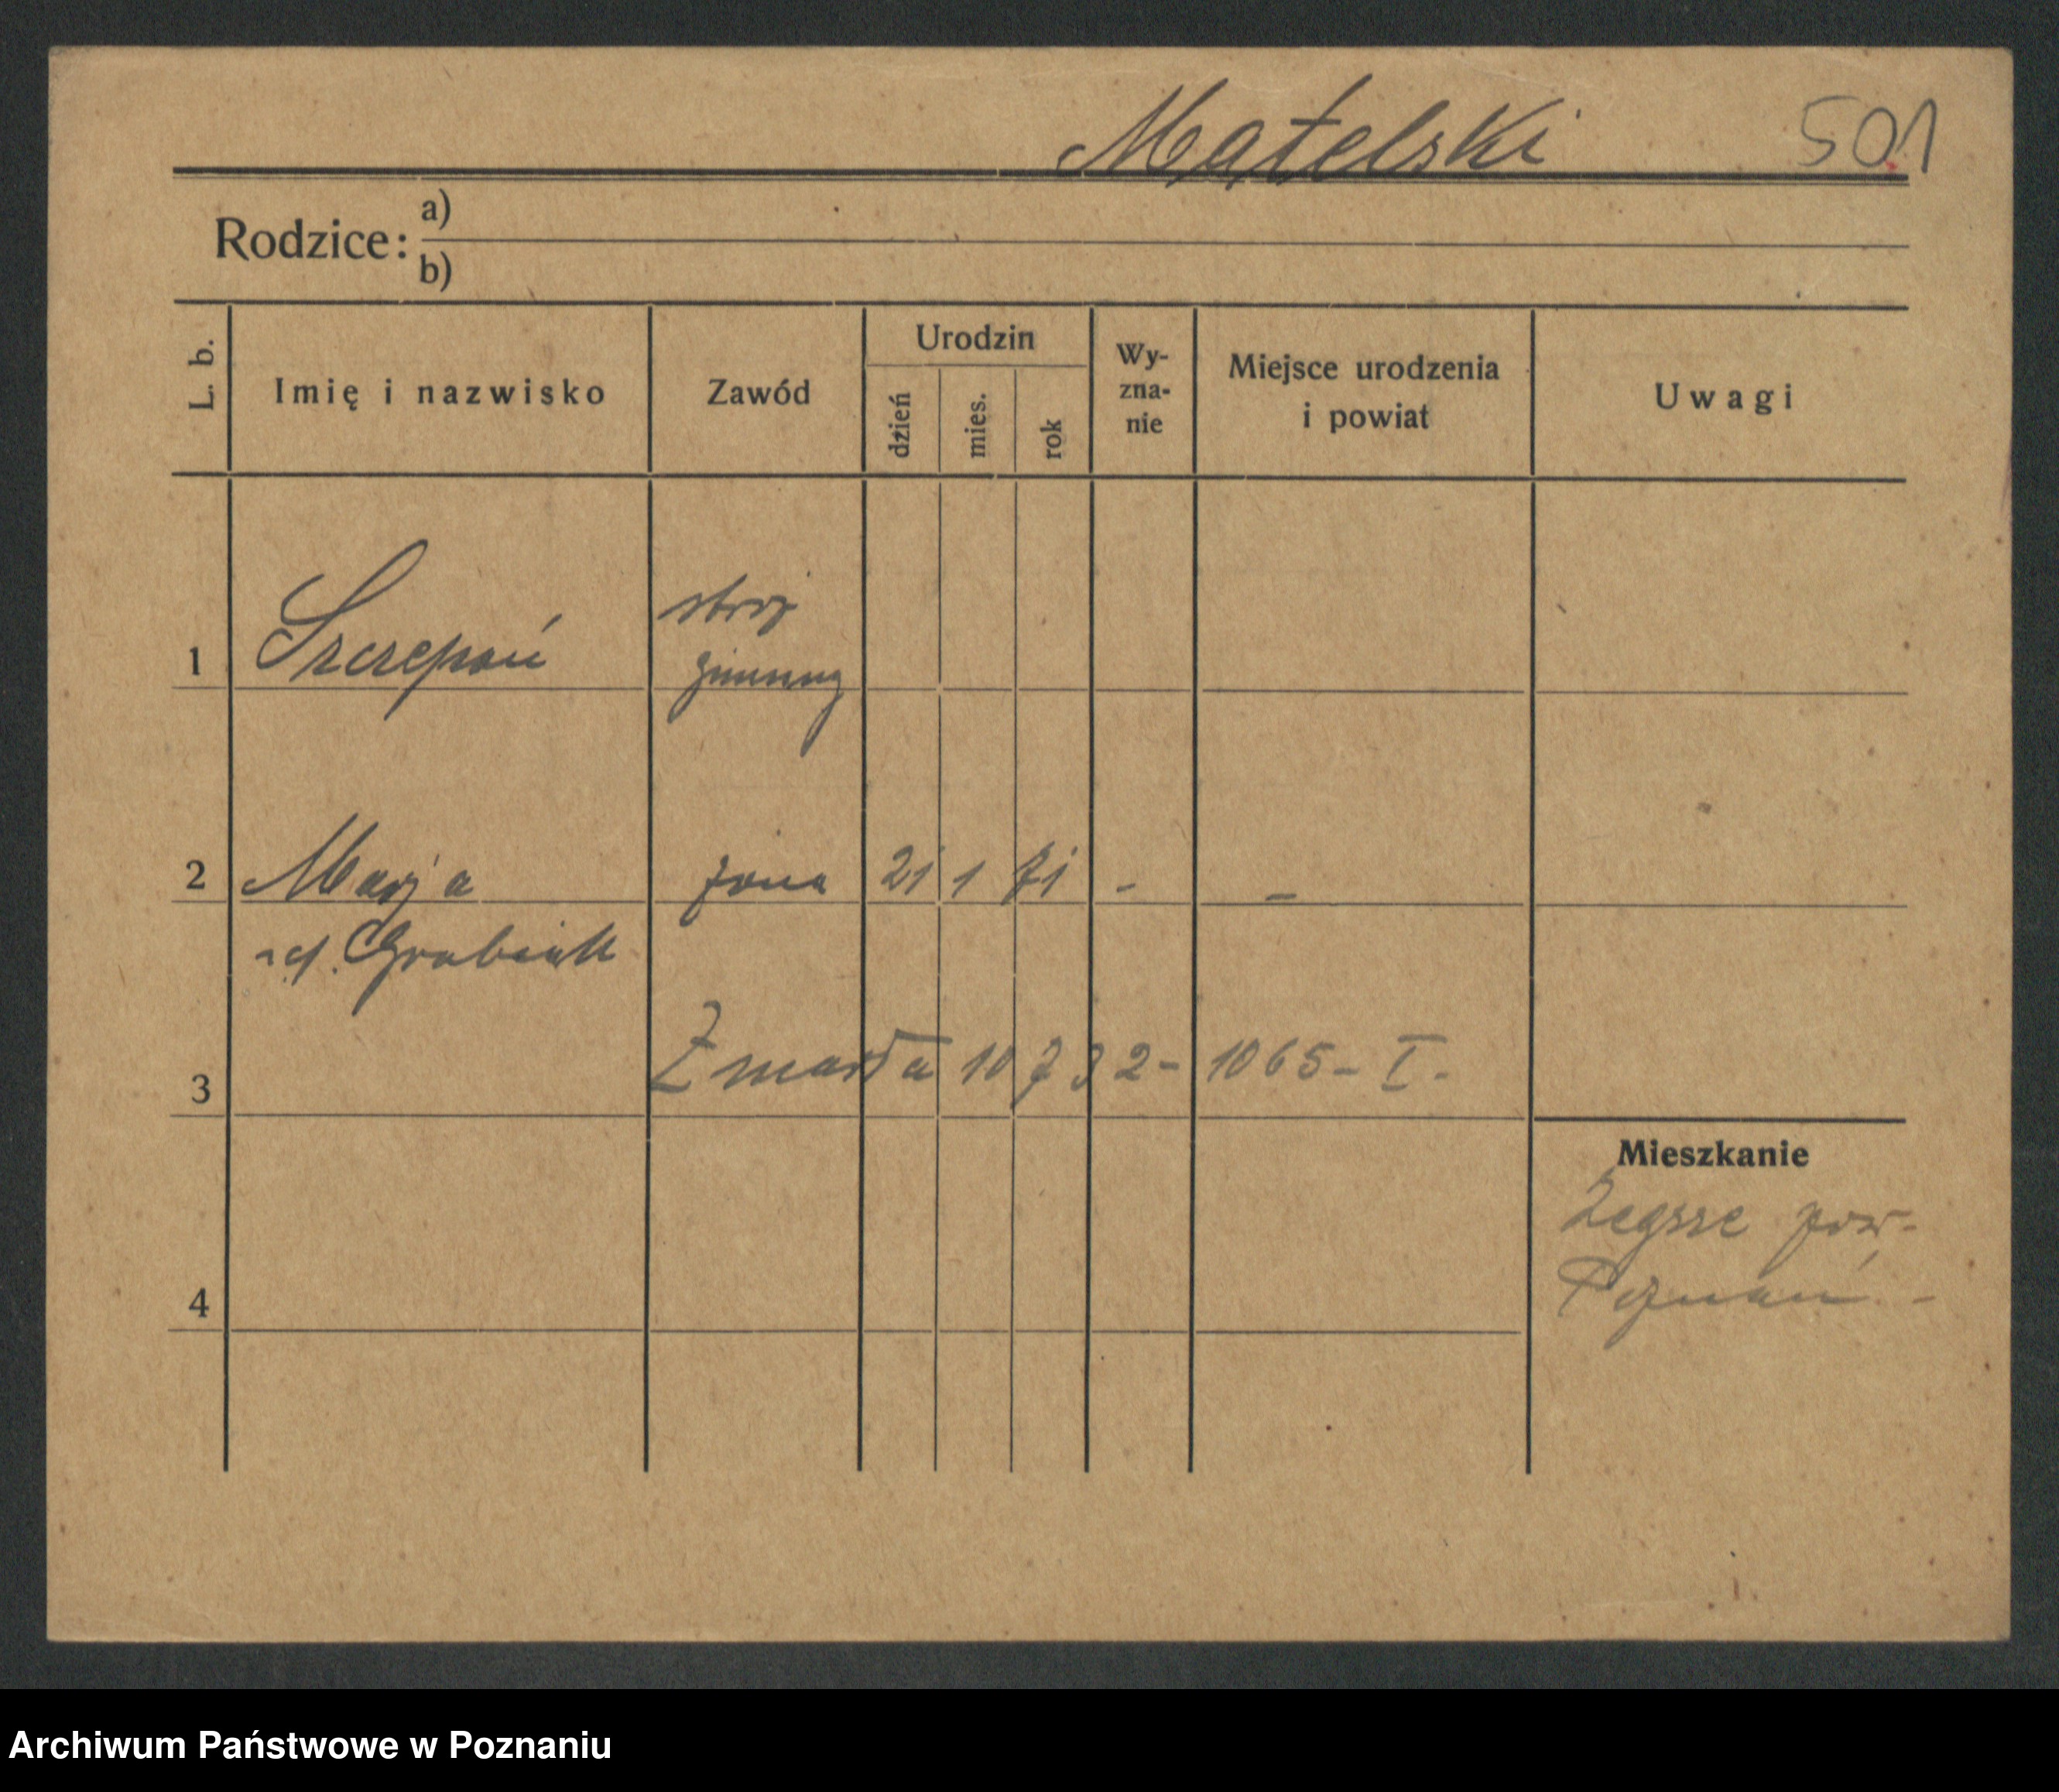 Matelski 501
Rodzice: a)
b)
L. b. Imię i nazwisko Zawód Urodzin dzień mies. rok Wy-zna-nie Miejsce urodzenia i powiat Uwagi
1 Szczepań stróż
gminny
2 Marja żona 21 1 71 - -
Zmarła 10 7 32 - 1065 - I -
3
Mieszkanie
Żegrze pow.
Poznań -
4
Archiwum Państwowe w Poznaniu